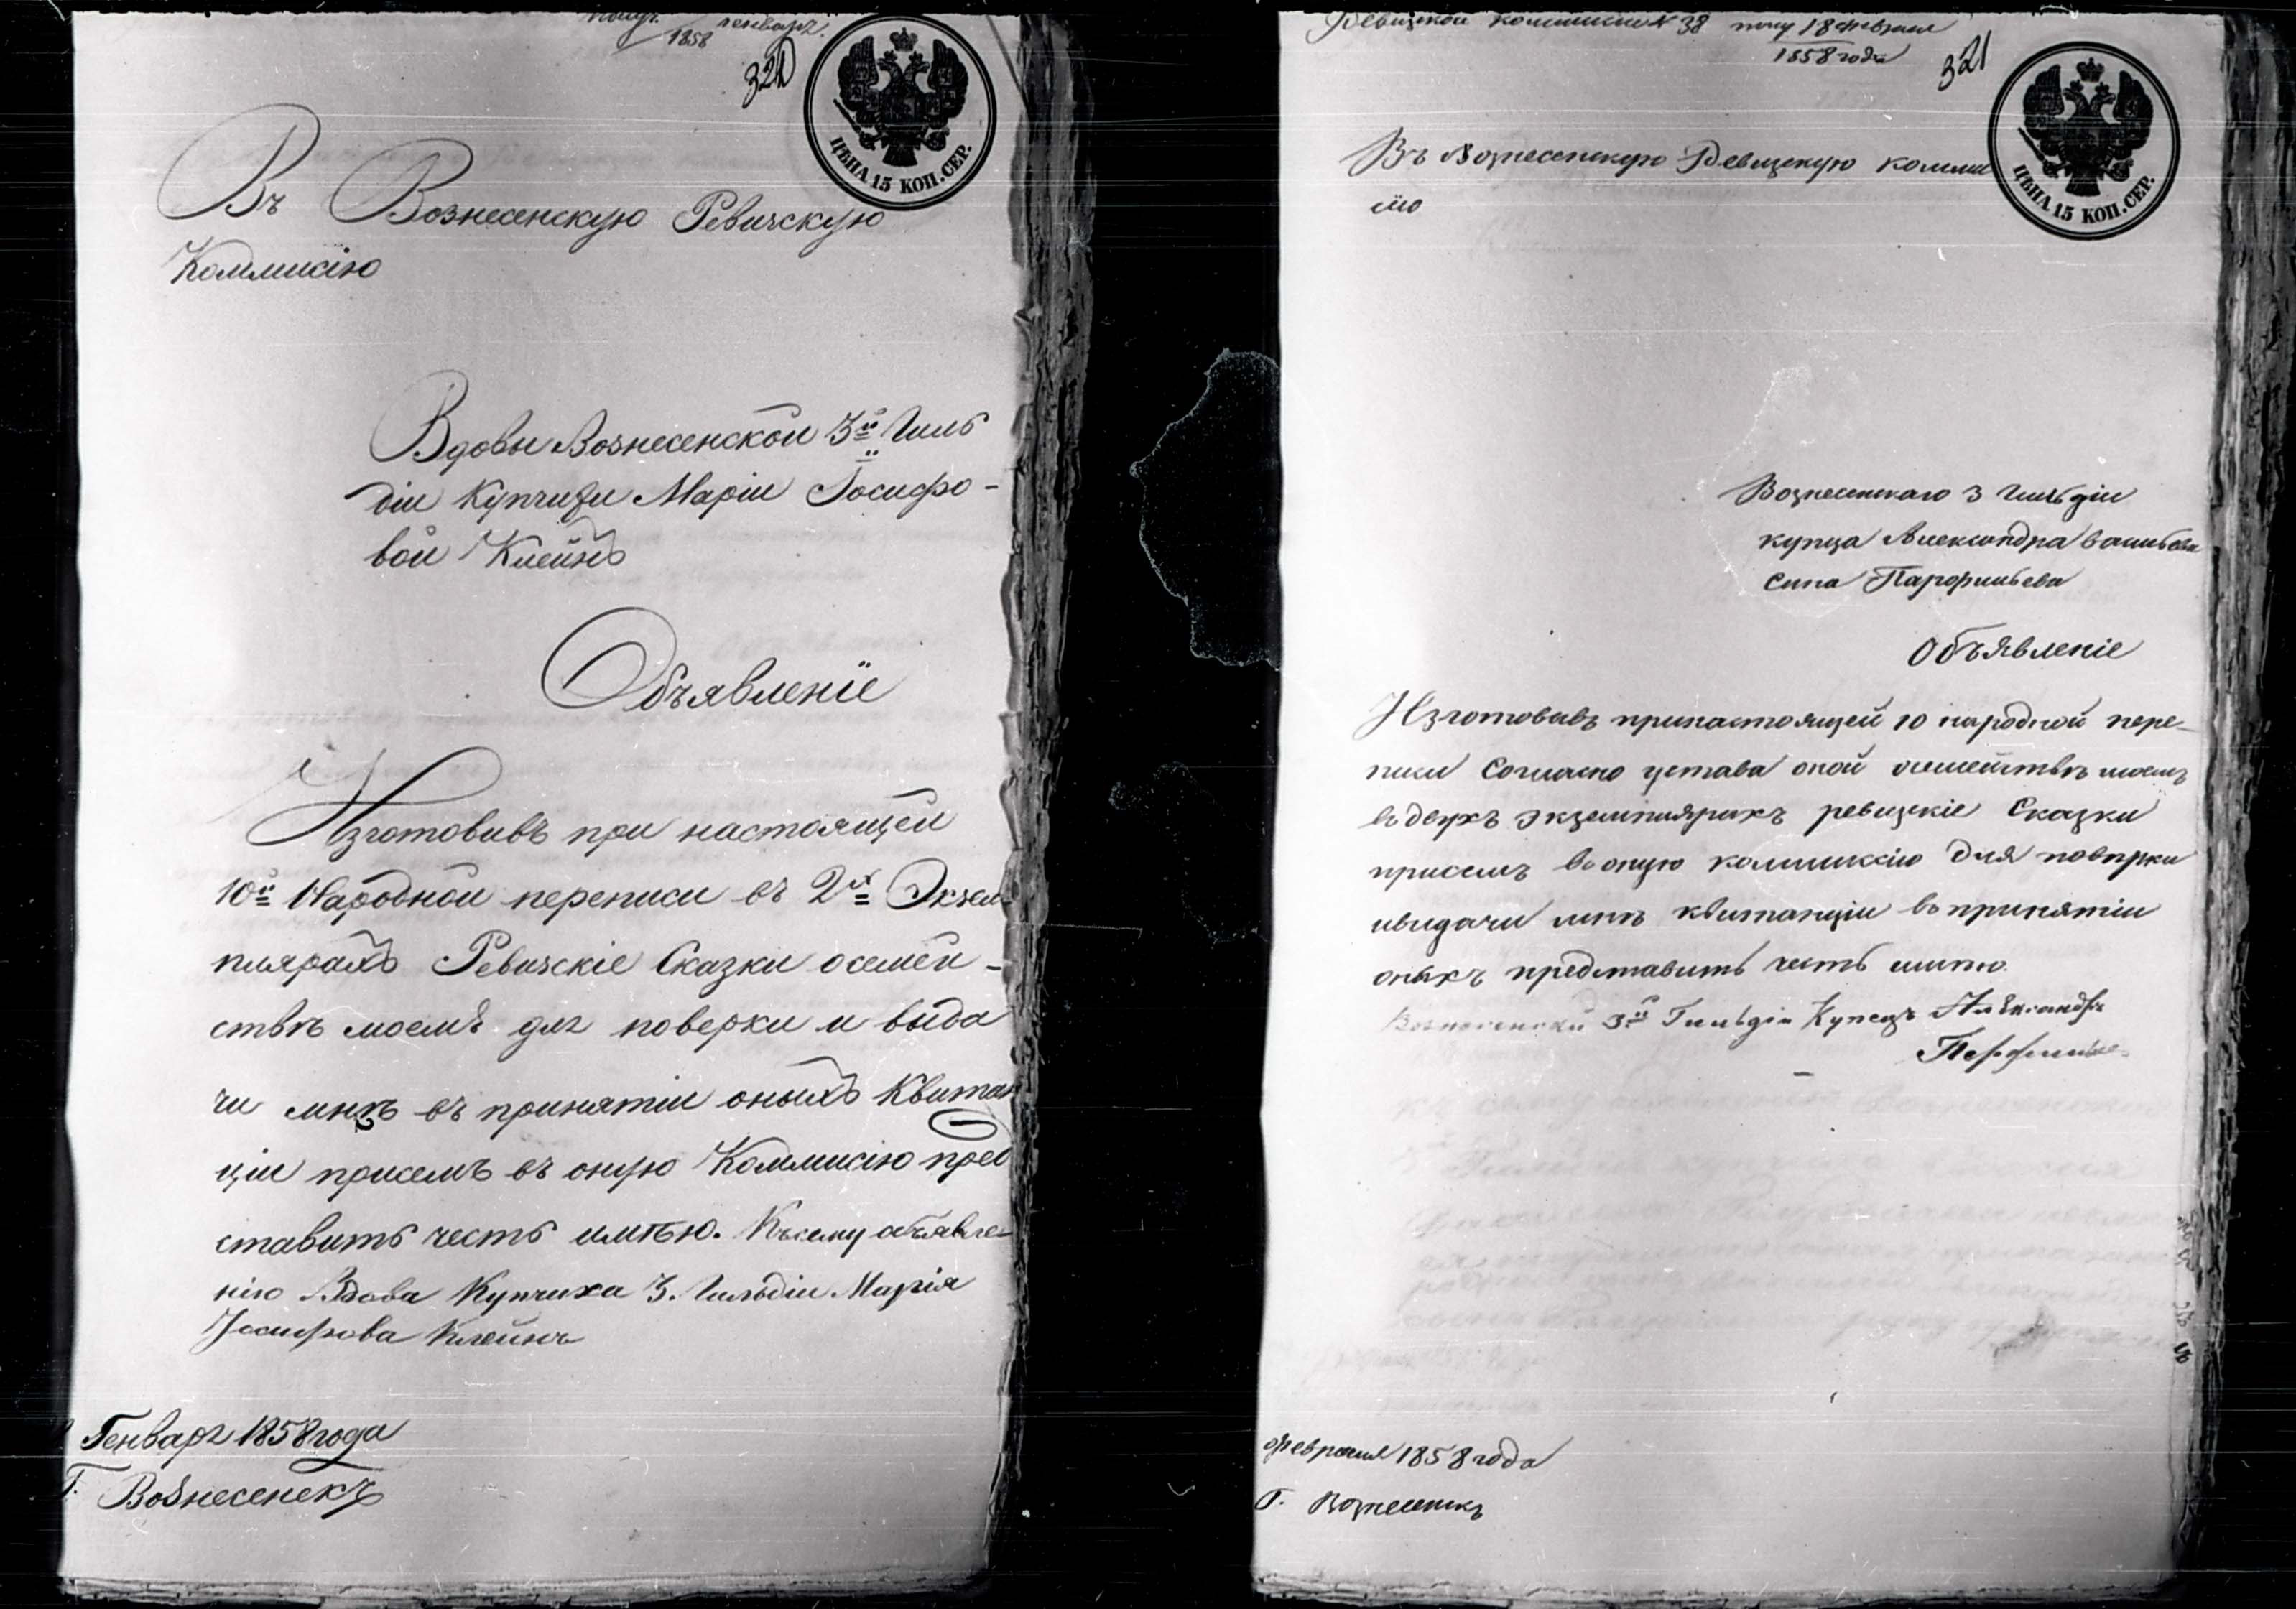 генваря
1858
320
ЦѢНА 15 КОП. СЕР.
Въ Вознесенскую Ревизскую
Коммисію
Вдовы Вознесенской 3й Гиль
діи Купчихи Маріи Іосифо-
вой Клейнъ
Объявленіе
Изготовивъ при настоящей
10й Народной переписи въ 2х Экзем
плярахъ Ревизскіе Сказки осемей-
ствѣ моемъ для поверки и выда
чи мнѣ въ принятіи оныхъ Квитан
ціи присемъ въ оную Коммисію пред
ставить честь имѣю. Къ сему объявле-
нію Вдова Купчиха 3. Гильдіи Марія
Іосифова Клейнъ
Генваря 1858 года
Г. Вознесенскъ
Ревизской коммисіи N 38 полу 18 февраля
1858 года
321
ЦѢНА 15 КОП. СЕР.
Въ Вознесенскую Ревизскую коммис
сію
Вознесенскаго 3 гильдіи
купца Александра Васильева
сина Парфильева
Объявленіе
Изготовивъ принастоящей 10 народной пере-
писи Согласно устава оной осемействѣ моемъ
въ двухъ экземплярахъ ревизскіе Сказки
присемъ во оную коммиссію для повѣрки
ивидачи мнѣ квитанціи въ принятіи
оныхъ представить честь имѣю.
Вознесенскй 3й Гильдіи Купецъ Александръ
Февраля 1858 года
Г. Вознесенскъ